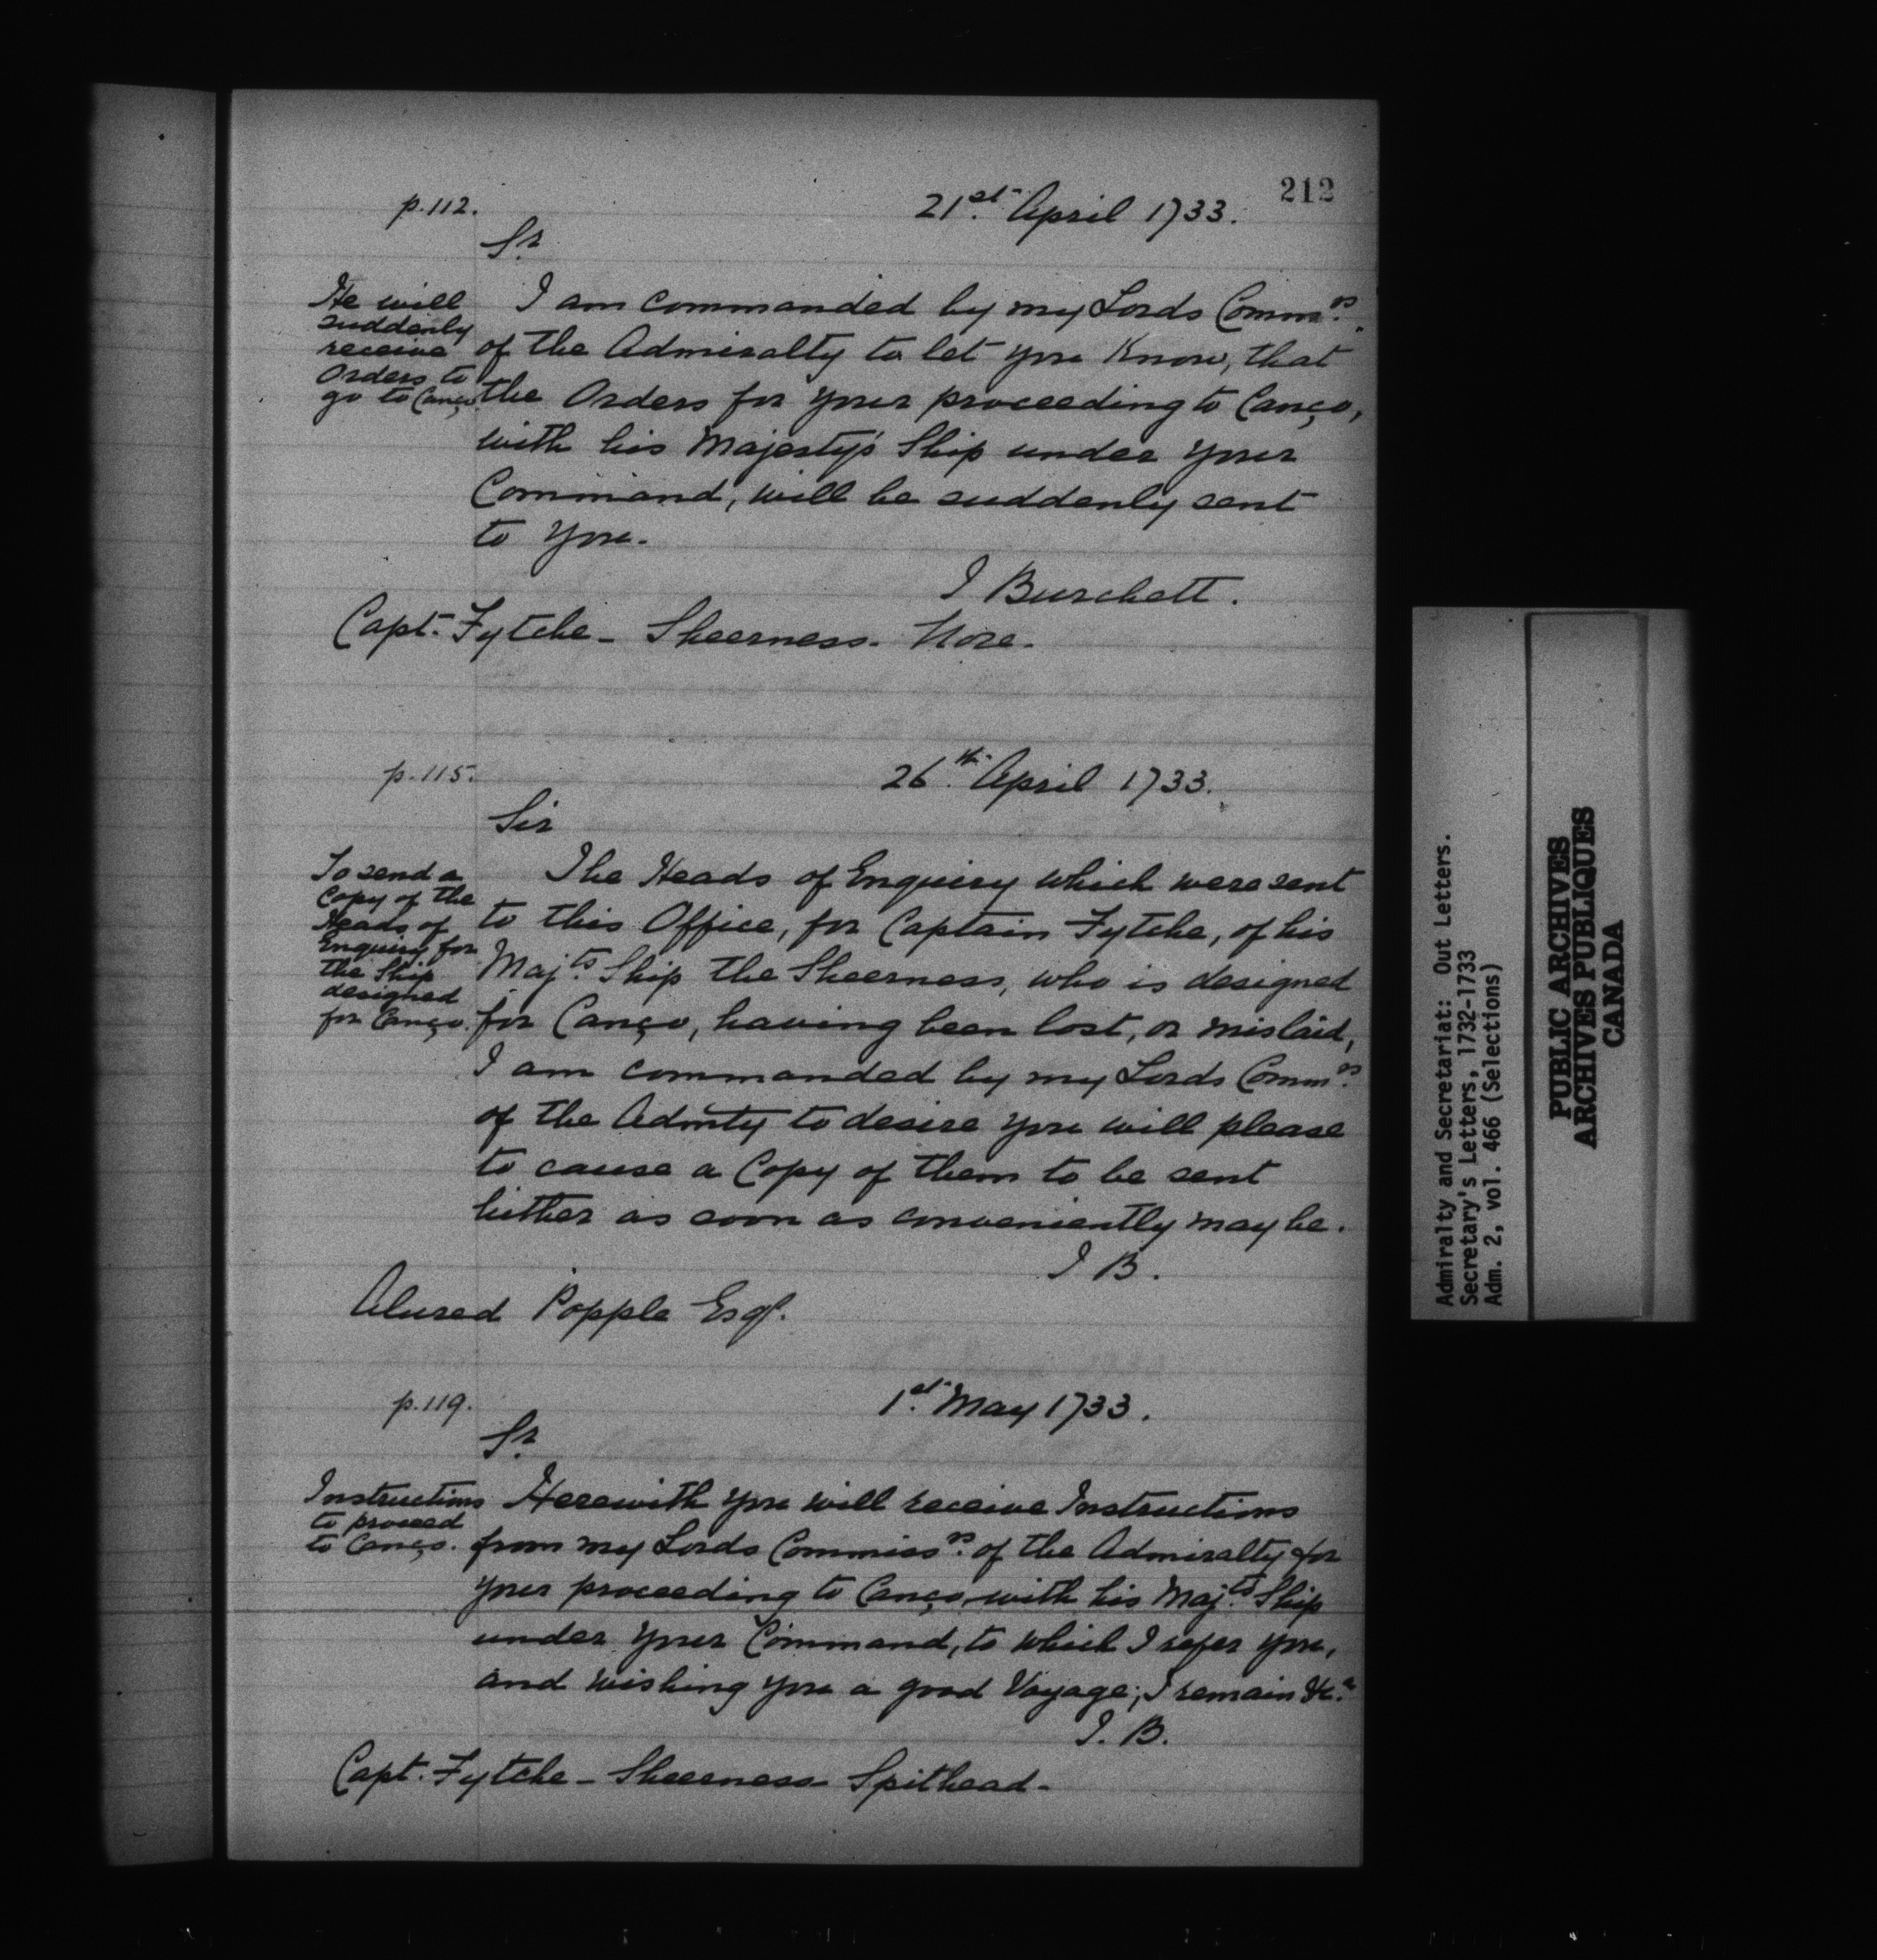 212
p.112. 21st April 1733.
Sr.
He will
suddenly
receive
Orders to
go to Canço.
I am commanded by my Lords Commrs.
of the Admiralty to let you Know, that
the Orders for your proceeding to Canço,
with his Majesty's Ship under your
Command, will be suddenly sent
to you.
I Burchett.
Capt. Fytche - Sheerness. Nore.
p.115. 26th April 1733.
Sir
To send a
Copy of the
Heads of
Enquiry for
the Ship
designed
for Canço.
The Heads of Enquiry which were sent
to this Office, for Captain Fytche, of his
Majts. Ship the Sheerness, who is designed
for Canço, having been lost, or mislaid,
I am commanded by my Lords Commrs.
of the Admty to desire you will please
to cause a Copy of them to be sent
hither as soon as conveniently may be.
I B.
Alured Popple Esqr.
p.119. 1st May 1733.
Sr.
Instructions
to proceed
to Canço.
Herewith you will receive Instructions
from my Lords Commissrs. of the Admiralty for
your proceeding to Canço with his Majts. Ship
under your Command, to which I refer you,
and wishing you a good Voyage, I remain &ca.
I. B.
Capt. Fytche - Sheerness Spithead -
Admiralty and Secretariat: Out Letters.
Secretary's Letters, 1732-1733
Adm. 2, vol. 466 (Selections)
PUBLIC ARCHIVES
ARCHIVES PUBLIQUES
CANADA